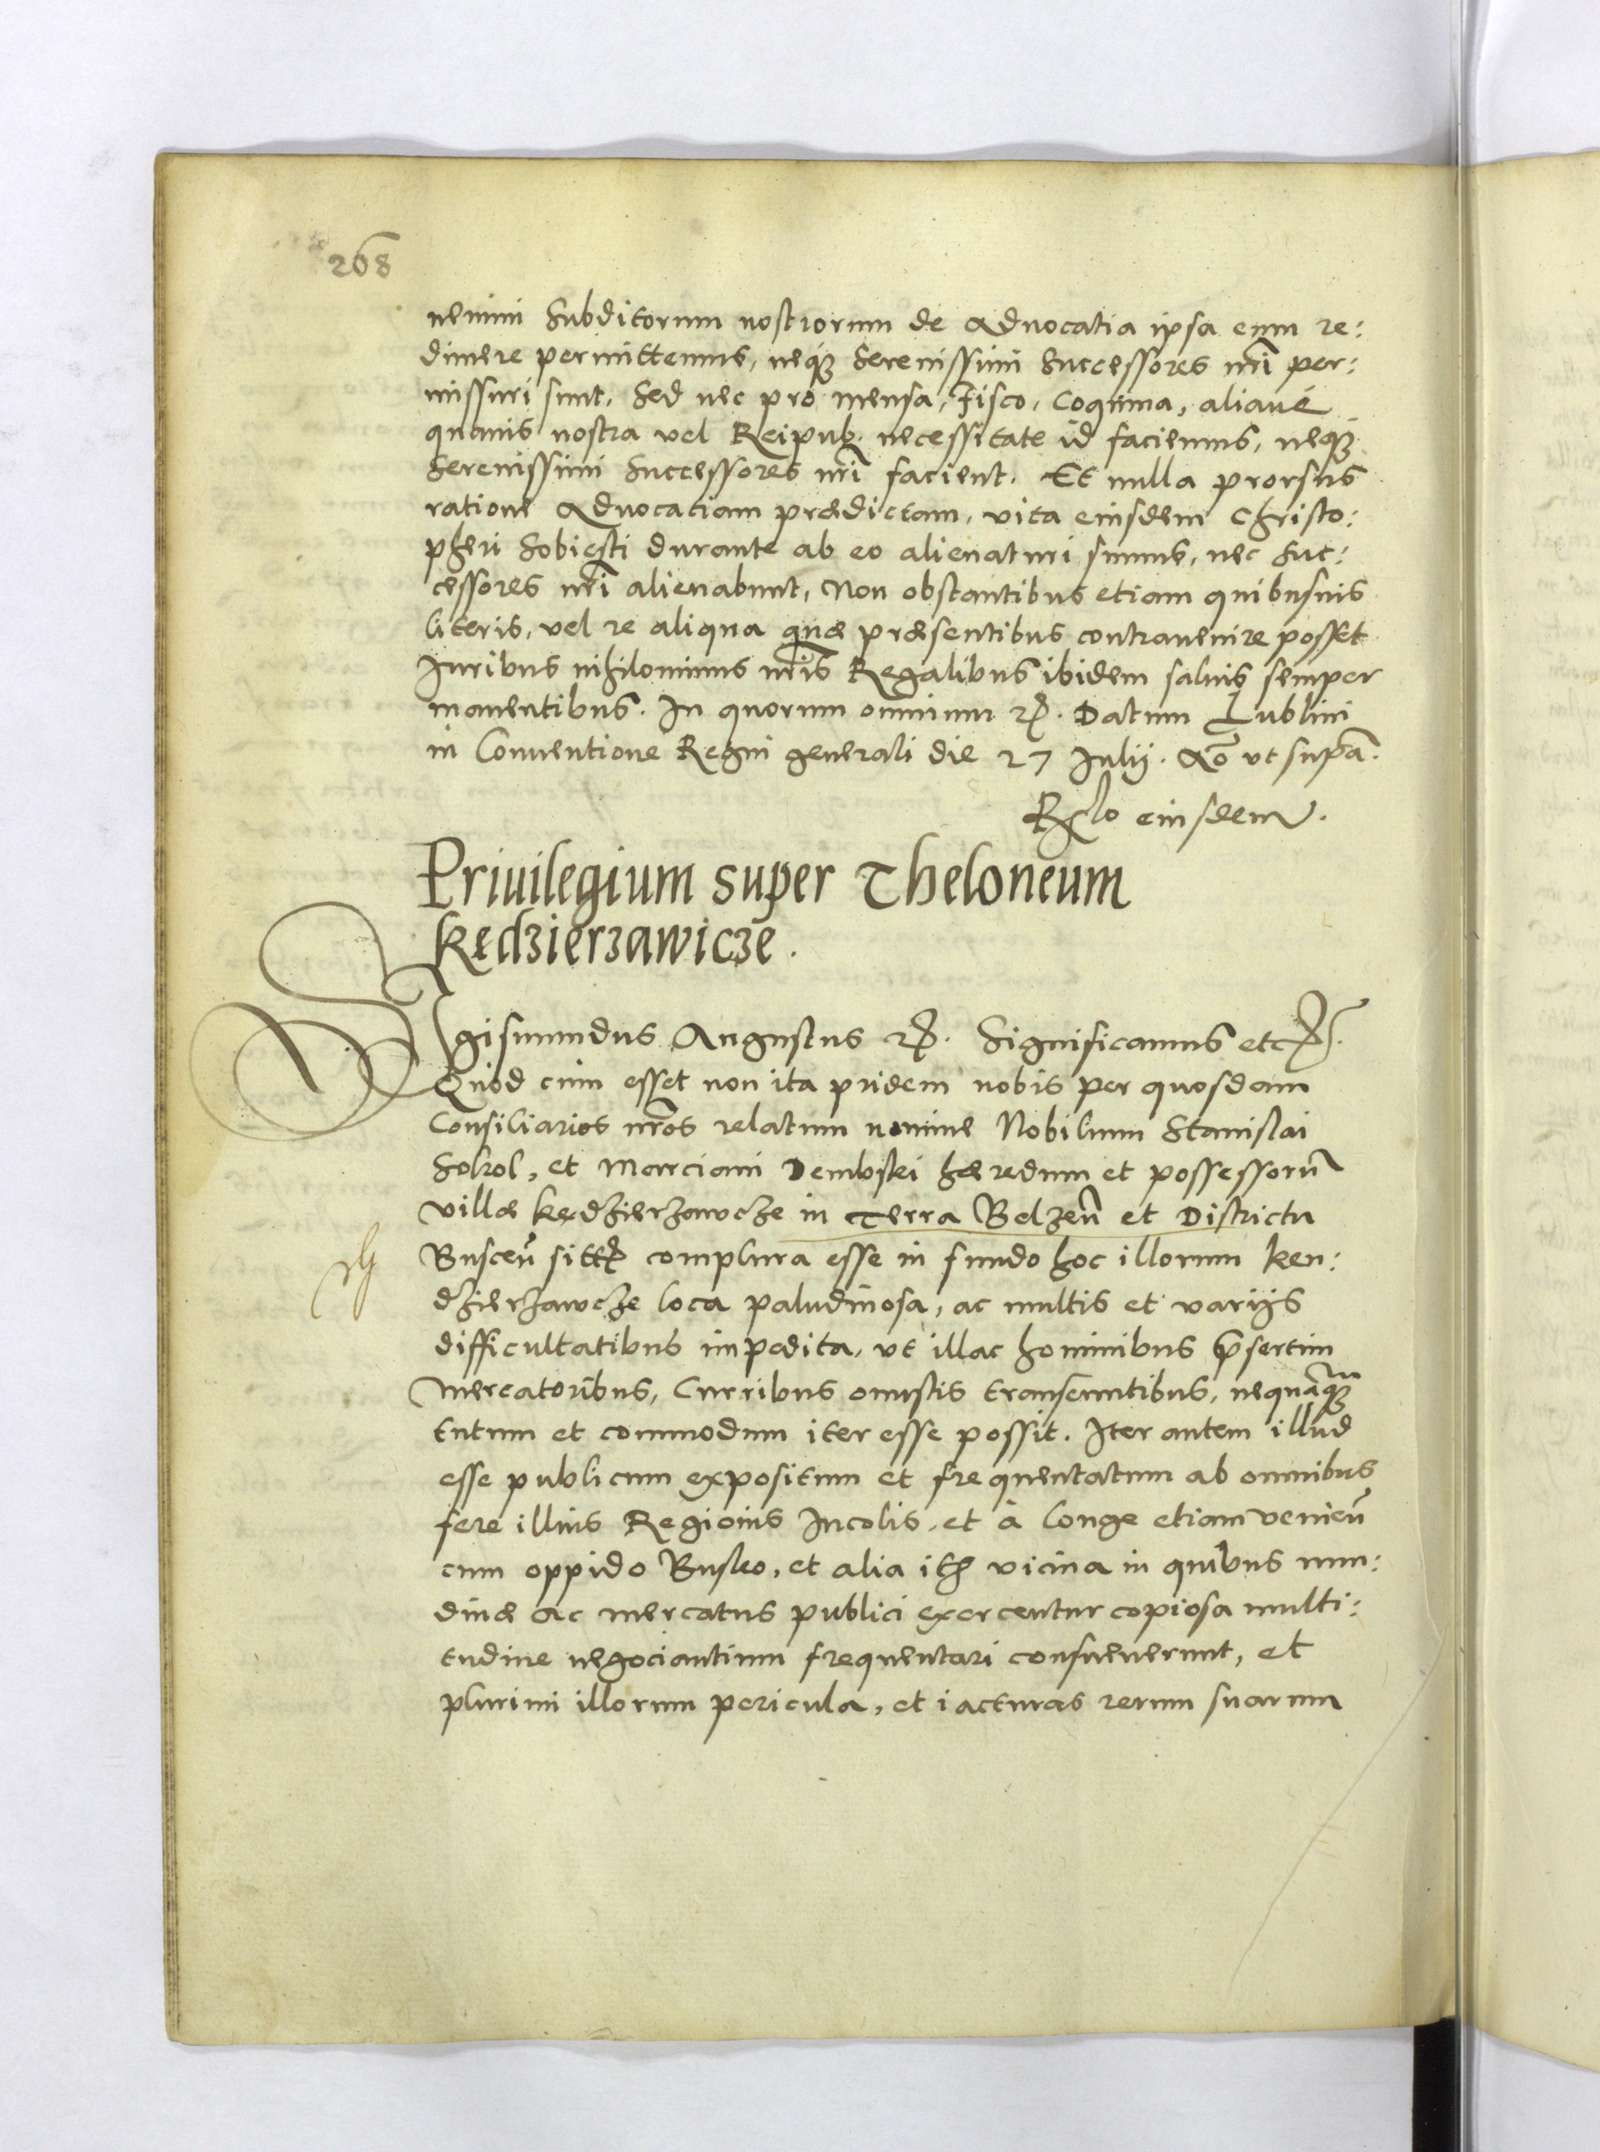 268
nemini subditorum nostrorum de Aduocatia ipsa eum re:
dimere permittemus, neq3 serenissimi successores nri per:
missuri sunt. sed nec pro mensa, Fisco, Coquina, aliaué
quauis nostra vel Reipub. necessitate id faciemus, neq3
serenissimi successores nri facient. Et nulla prorsus
ratione Aduocatiam prædictam, vita eiusdem Christo:
pheri Sobieski durante ab eo alienaturi sumus, nec suc:
cessores nri alienabunt, Non obstantibus etiam quibusuis
literis, vel re aliqua quæ præsentibus contrauenire posset
Iuribus nihilominus nris Regalibus ibidem saluis semper
manentibus. In quorum omnium etc. Datum Lublini
in Conuentione Regni generali die 27 Iulij. Ao vt supa.
Rlo eiusdem.
Priuilegium super Theloneum
Kędzierzawicze.
Sigismundus Augustus etc. Significamus etc.
Quod cum esset non ita pridem nobis per quosdam
Consiliarios nros relatum nomine Nobilium Stanislai
Sokol, et Marciani Dembski hæredum et possessorū
villæ Kędzierzawcze in Terra Belzeñ et Districtu
Busceñ sitt complura esse in fundo hoc illorum Ken:
dzierzawcze loca paludinosa, ac multis et varijs
difficultatibus impedita, vt illac hominibus psertim
mercatoribus, Curribus onustis transeuntibus, nequaq3
tutum et commodum iter esse possit. Iter autem illud
esse publicum expositum et frequentatum ab omnibus
fere illius Regionis Incolis, et à longe etiam venieñ
cum oppido Busko, et alia itē vicina in quibus nun:
dinæ ac mercatus publici exercentur copiosa multi:
tudine negociantium frequentari consueuerunt, et
plurimi illorum pericula, et iacturas rerum suarum